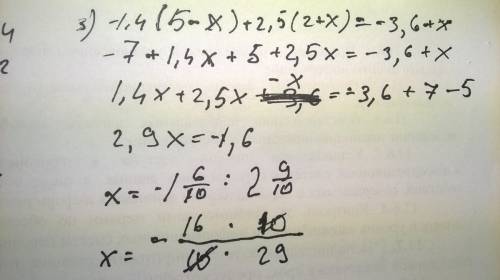 4
3) -1,4(5-x)+2,5(2+x)=-3,6+x
2
-7+1,4x+5+2,5x=-3,6+x
1,4x+2,5x-x=-3,6+7-5
2,9x=-1,6
x=-1 6/10 : 2 9/10
x= - 16 · 10 / 10 · 29